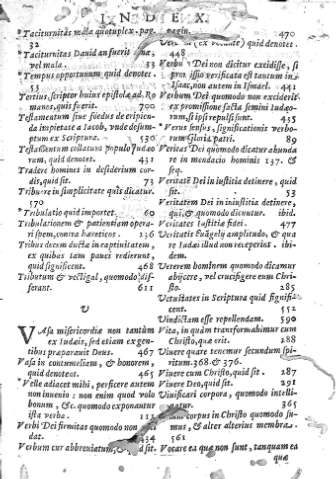 INDEX.
Taciturnitas mala quotuplex. pag.
32
Taciturnitas Dauid an fuerit
vel mala. 33
Tempus opportunum quid denotet.
53
Tertius scriptor huius epistolæ ad Ro
manos, quis fuerit. 700
Testamentum siue fœdus de eripien-
da impietate a Iacob, vnde desum-
ptum ex Scriptura. 530
Testamentum collatum populo Iudæo
rum, quid denotet. 431
Tradere homines in desiderium cor-
dis, quid sit. 73
Tribuere in simplicitate quis dicatur.
570
Tribulatio quid importet. 60
Tribulationem & patientiam opera-
ri spem, contra hæreticos. 136
Tribus decem ductæ in captiuitatem,
ex quibus tam pauci redierunt,
quid significent. 468
Tributum & vectigal, quomodo dif-
ferant. 611
V
VAsa misericordiæ non tantùm
ex Iudæis, sed etiam ex gen-
tibus præparauit Deus. 467
Vasa in contumeliam, & honorem,
quid denotent. 465
Velle adiacet mihi, perficere autem
non inuenio: non enim quod volo
bonum, &c. quomodo exponantur
ista verba. 313
Verbi Dei firmitas quomodo non
dat. 434
Verbum cur abbreuiatum, & quid sit.
pagin. 470
quid denotet.
448
Verbū Dei non dicitur excidisse, si
promissio verificata est tantum in
Isaac, non autem in Ismael. 441
Verbum Dei quomodo non exciderit
ex promissione facta semini Iudæo-
rum, si ipsi repulsi sunt. 435
Verus sensus, significationis verbo-
rum Gloria patri. 89
Veritas Dei quomodo dicatur abunda
re in mendacio hominis 137. &
seq.
Veritatē Dei in iustitia detinere, quid
sit. 53
Veritatem Dei in iniustitia detinere,
qui, & quomodo dicuntur. ibid.
Veritates iustitia fidei. 477
Veritatē Euāgelij amplitudo, & qua
re Iudæi illud non receperint. ibi-
dem.
Veterem hominem quomodo dicamur
abijcere, vel crucifigere cum Chri-
sto. 285
Vetustates in Scriptura quid signifi-
cent. 552
Vindictam esse repellendam. 590
Vita, in quàm transformabimur cum
Christo, quæ erit. 288
Viuere quare tenemur secundum spi-
ritum. 368. & 376.
Viuere cum Christo, quid sit. 287
Viuere Deo, quid sit. 291
Viuificari corpora, quomodo intelli-
gatur. 365
corpus in Christo quomodo su-
mus, & alter alterius membra.
561
Vocare ea quæ non sunt, tanquam ea
quæ